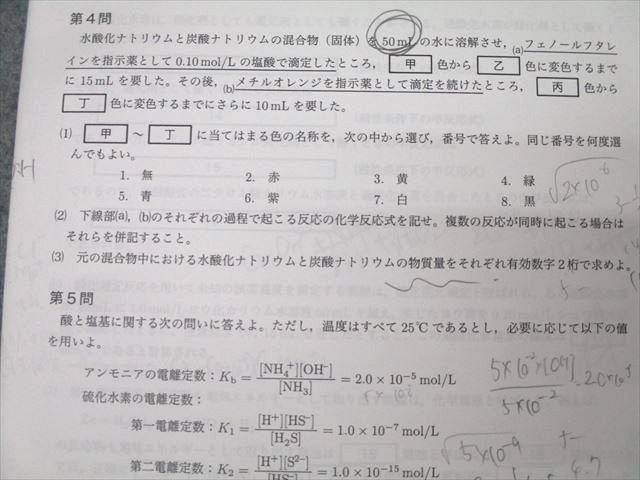 第4問
水酸化ナトリウムと炭酸ナトリウムの混合物（固体）を 50 mL の水に溶解させ，(a)フェノールフタレ
インを指示薬として 0.10 mol/L の塩酸で滴定したところ， 甲 色から 乙 色に変色するまで
に 15 mL を要した。その後，(b)メチルオレンジを指示薬として滴定を続けたところ， 丙 色から
丁 色に変色するまでにさらに 10 mL を要した。
(1) 甲 ～ 丁 に当てはまる色の名称を，次の中から選び，番号で答えよ。同じ番号を何度選
んでもよい。
1. 無 2. 赤 3. 黄 4. 緑
5. 青 6. 紫 7. 白 8. 黒
(2) 下線部(a)，(b)のそれぞれの過程で起こる反応の化学反応式を記せ。複数の反応が同時に起こる場合は
それらを併記すること。
(3) 元の混合物中における水酸化ナトリウムと炭酸ナトリウムの物質量をそれぞれ有効数字2桁で求めよ。
√2×10⁻⁶
第5問
酸と塩基に関する次の問いに答えよ。ただし，温度はすべて 25℃ であるとし，必要に応じて以下の値
を用いよ。
アンモニアの電離定数：K_b = [NH₄⁺][OH⁻]/[NH₃] = 2.0 × 10⁻⁵ mol/L
硫化水素の電離定数：
第一電離定数：K₁ = [H⁺][HS⁻]/[H₂S] = 1.0 × 10⁻⁷ mol/L
第二電離定数：K₂ = [H⁺][S²⁻]/[HS⁻] = 1.0 × 10⁻¹⁵ mol/L
5×10⁻²
√5×10⁻⁹